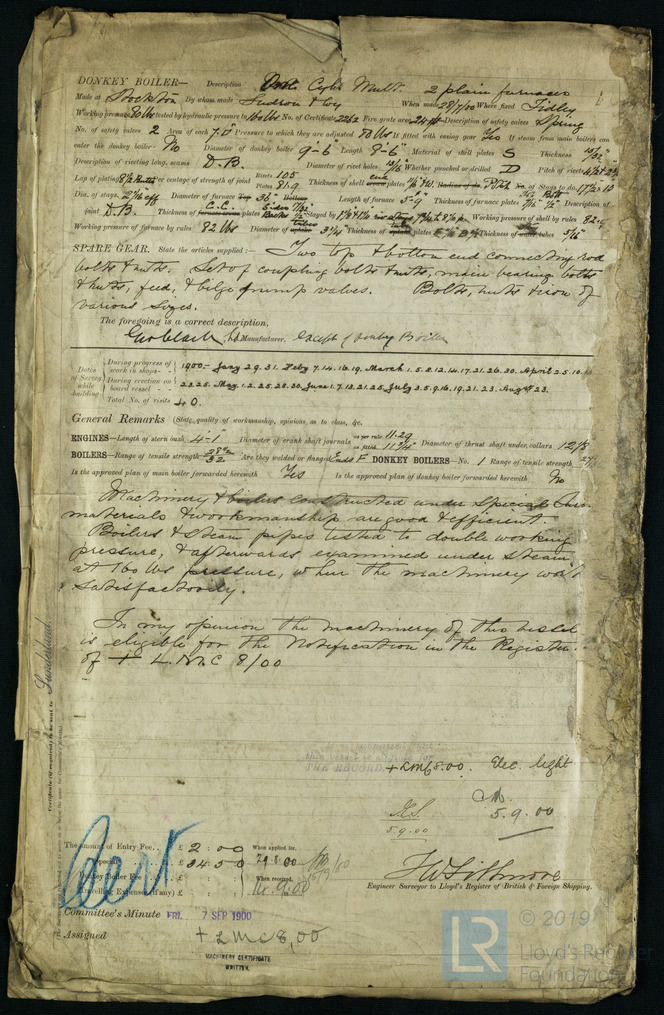 DONKEY BOILER— Description One Cyl. Mult. 2 plain furnaces
Made at Stockton By whom made Hudson & Coy When made 28/7/00 Where fixed Tidley
Working pressure 80 lbs tested by hydraulic pressure to 160 lbs No. of Certificate 2262 Fire grate area Description of safety valves Spring
No. of safety valves 2 Area of each 7.0" Pressure to which they are adjusted 80 lbs If fitted with easing gear Yes If steam from main boilers can
enter the donkey boiler No Diameter of donkey boiler 9'-6" Length 9'-6" Material of shell plates S Thickness
Description of riveting long. seams D.B. Diameter of rivet holes Whether punched or drilled D Pitch of rivets
Lap of plating Per centage of strength of joint Rivets 105 Plates 81.9 Thickness of shell plates Stays to do.
Dia. of stays Diameter of furnace 36" Length of furnace 5'-9" Thickness of furnace plates Description of
joint D.B. Thickness of plates Stayed by Working pressure of shell by rules 82
Working pressure of furnace by rules 82 lbs Diameter of Thickness of plates Thickness of tubes 5/16"
SPARE GEAR. State the articles supplied:— Two top & bottom end connecting rod
bolts & nuts. Set of coupling bolts & nuts, main bearing bolts
& nuts, feed, & bilge pump valves. Bolts, nuts & iron of
various sizes.
The foregoing is a correct description,
Geo Clark, Ld Manufacturer. Except of Donkey Boiler
Dates of Survey while building
During progress of work in shops— 1900:— Jany 29. 31. Feby 7. 14. 16. 19. March 1. 5. 8. 12. 14. 17. 21. 26. 30. April 2. 5. 10.
During erection on board vessel— 23. 25. May. 1. 2. 25. 28. 30. June 1. 7. 13. 21. 25. July 3. 5. 9. 16. 19. 21. 23. Augt 23.
Total No. of visits 40.
General Remarks (State quality of workmanship, opinions as to class, &c.
ENGINES—Length of stern bush 4'-1" Diameter of crank shaft journals as per rule 11.29 as fitted Diameter of thrust shaft under collars
BOILERS—Range of tensile strength 28½/32 Are they welded or flanged Ends F DONKEY BOILERS—No. 1 Range of tensile strength
Is the approved plan of main boiler forwarded herewith Yes Is the approved plan of donkey boiler forwarded herewith No
Machinery & boilers constructed under Special Survey
materials & workmanship are good & efficient.
Boilers & steam pipes tested to double working
pressure, & afterwards examined under steam
at 160 lbs pressure, when the machinery wor
satisfactorily.
In my opinion the machinery of this vessel
is eligible for the Notification in the Register
of + L.M.C 8/00
Certificate (if required) to be sent to Sunderland
THE RECORD + LMC 8.00. Elec. light
5.9.00
5.9.00
Cert
The amount of Entry Fee.. £ 2 : 00 When applied for,
Special .. .. £ 34.5.0 29.8.00
Donkey Boiler Fee .. .. £ When received,
Travelling Expenses (if any) £ 9.00
Engineer Surveyor to Lloyd's Register of British & Foreign Shipping.
Committee's Minute FRI. 7 SEP 1900
Assigned + L M C 8,00
MACHINERY CERTIFICATE
WRITTEN.
LR © 2019
Lloyd's Register
Foundation